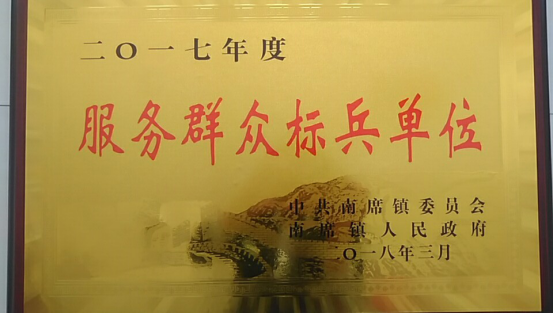 二〇一七年度
服务群众标兵单位
中共南席镇委员会
南席镇人民政府
二〇一八年三月